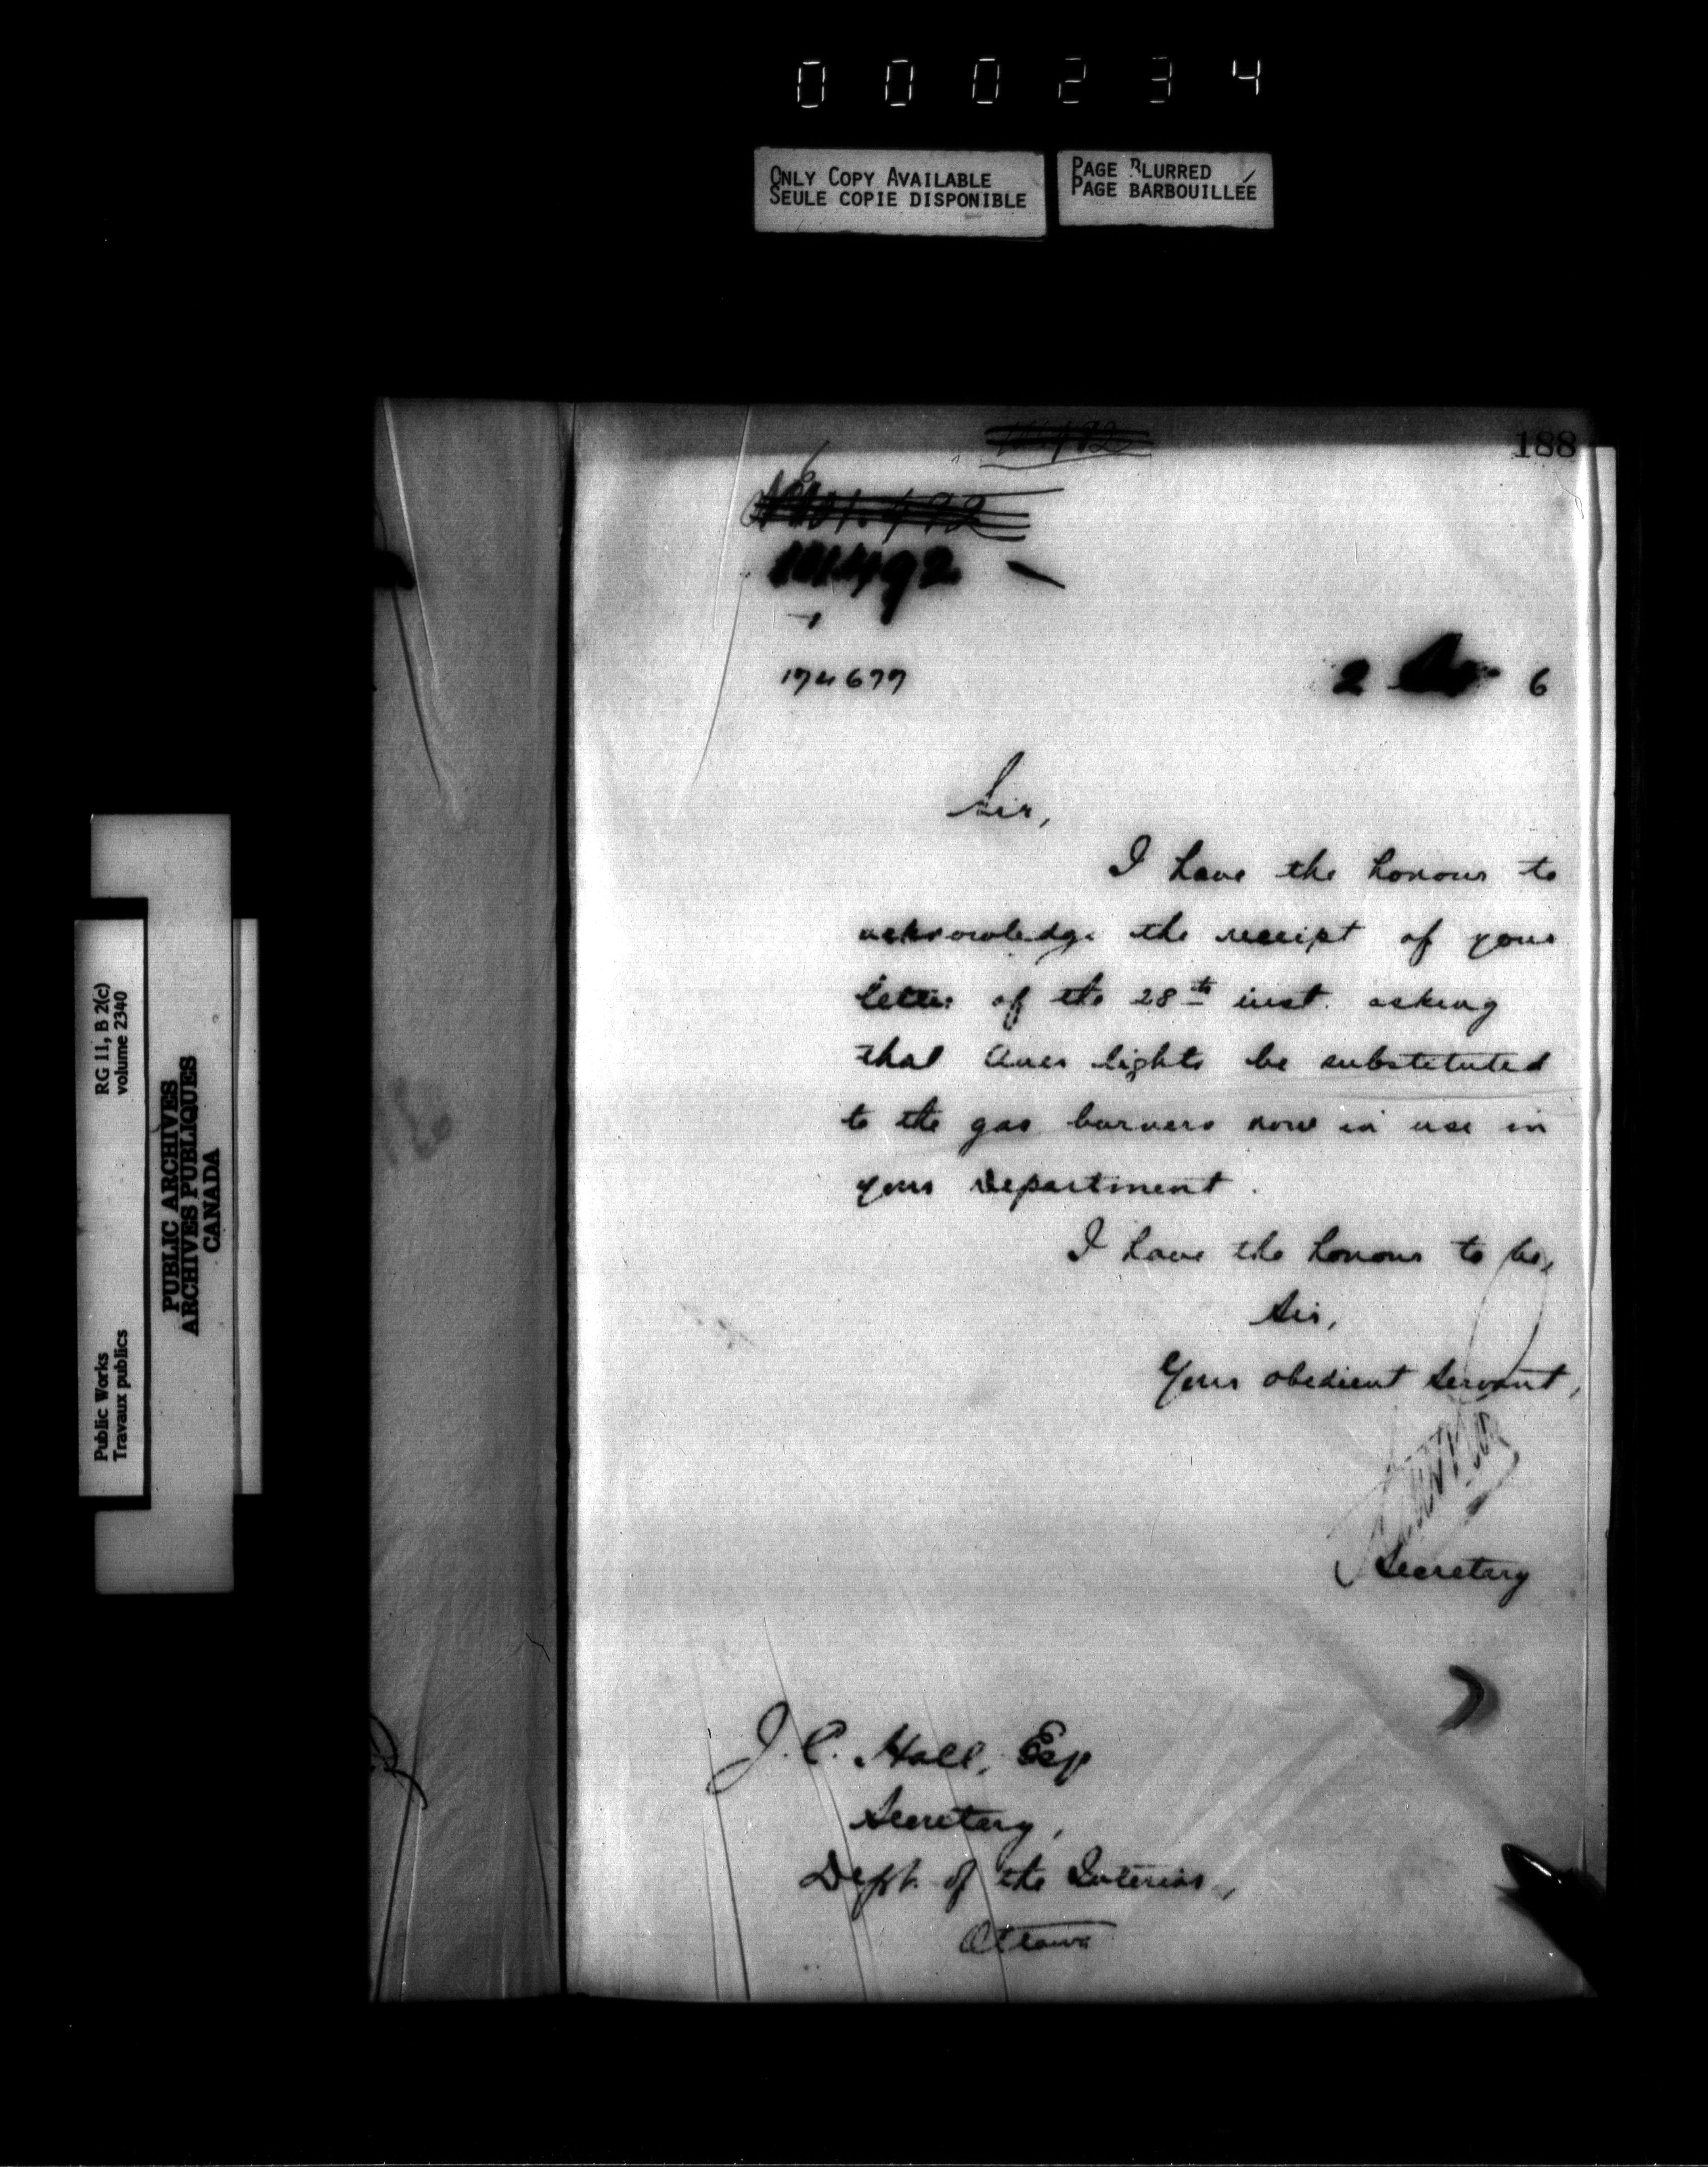 000234
ONLY COPY AVAILABLE
SEULE COPIE DISPONIBLE
PAGE BLURRED
PAGE BARBOUILLÉE
188
174677
2
6
Sir,
I have the honour to
acknowledge the receipt of your
letter of the 28th inst. asking
that Auer lights be substituted
to the gas burners now in use in
your Department.
I have the honour to be,
Sir,
Your obedient servant,
Secretary
J. C. Hall, Esq
Secretary,
Dept. of the Interior,
Ottawa
RG 11, B 2(c)
volume 2340
Public Works
Travaux publics
PUBLIC ARCHIVES
ARCHIVES PUBLIQUES
CANADA